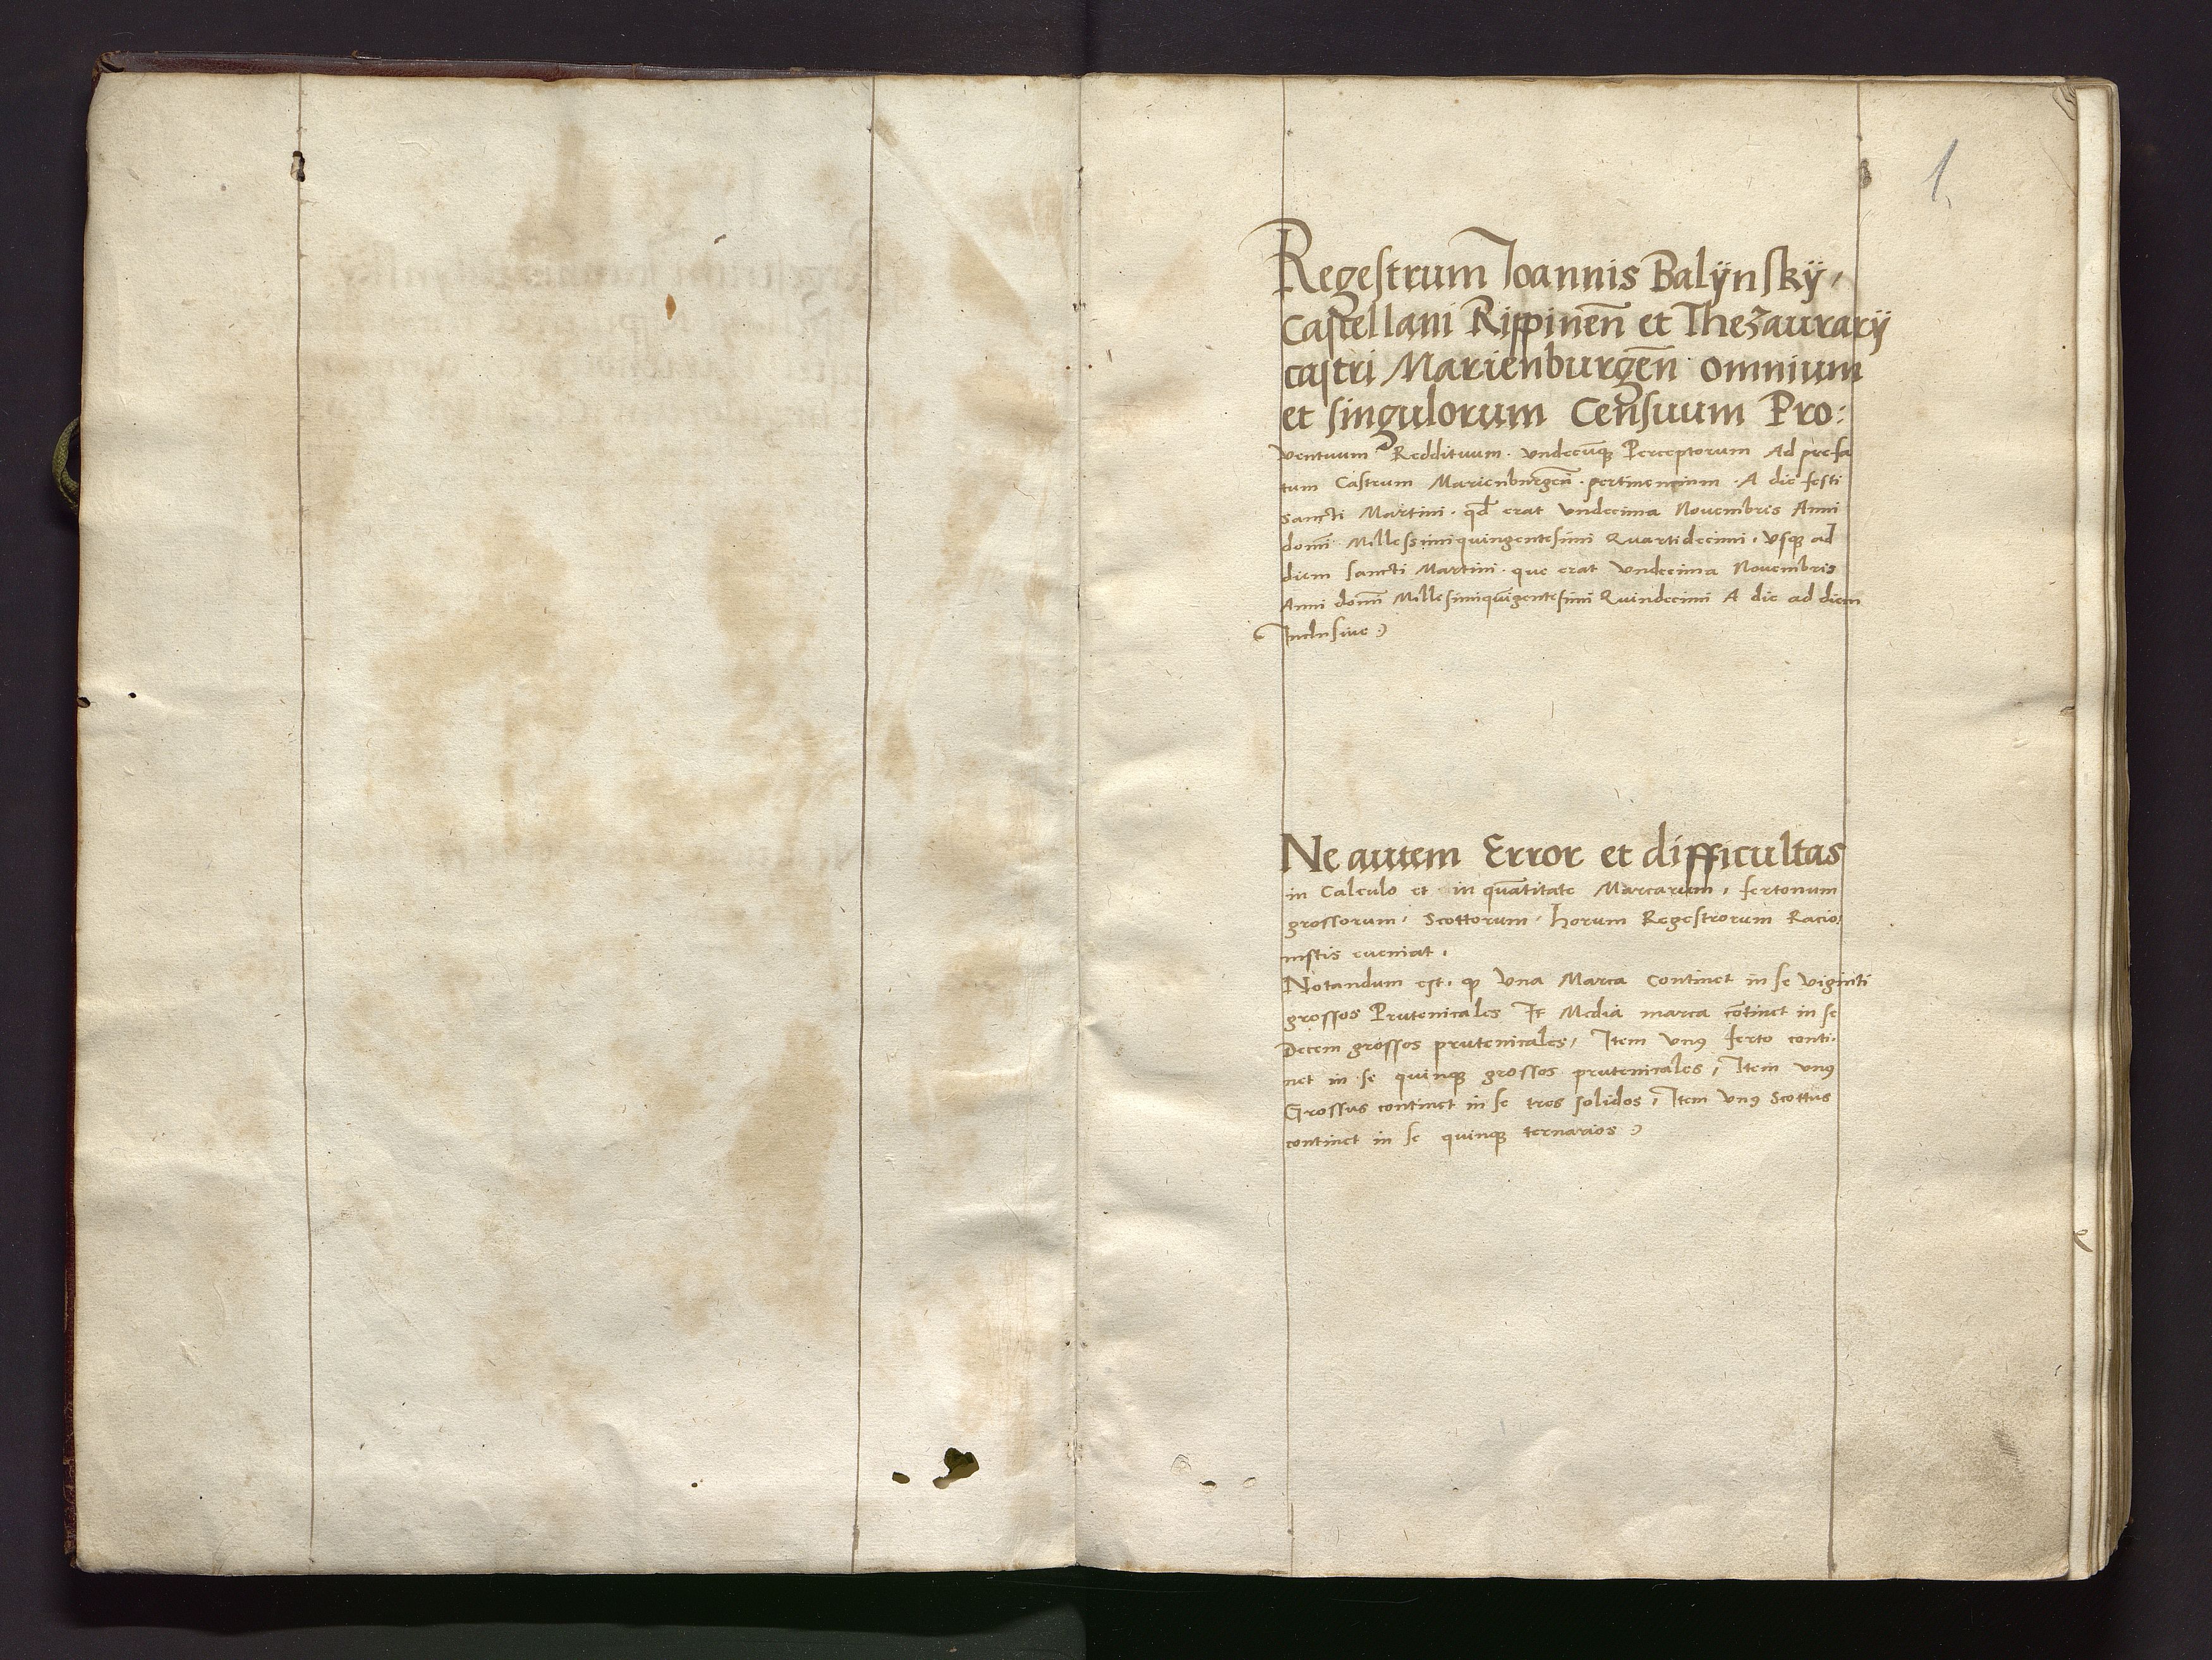 1
Regestrum Ioannis Balÿnskÿ,
Castellani Rippinen̄ et Thezaurarÿ
castri Marienburgen̄ omnium
et singulorum Censuum Pro:
ventuum Reddituum. vndecūqꝫ Perceptorum Ad prefa
tum Castrum Marienburgen̄. pertinencium. A die festi
sancti Martini. qd̄ erat vndecima Nouembris Anni
domī Millessimiquingentesimi Quartidecimi, vsqꝫ ad
diem sancti Martini. que erat vndecima Nouembris
Anni domī Millesimiquīgentesimi Quindecimi A die ad diem
Inclusiue
Ne autem Error et difficultas
in Calculo et in quātitate Marcarum, fertonum
grossorum, Scottorum, horum Regestrorum Racio:
nistis eueniat.
Notandum est. ꝙ vna Marca Continet in se viginti
grossos Prutenicales It Media marca cōtinet in se
Decem grossos prutenicales, Item vnꝰ ferto conti.
net in se quinqꝫ grossos prutenicales, Item vnꝰ
Grossus continet in se tres solidos, Item vnꝰ Scottus
continet in se quinqꝫ ternarios